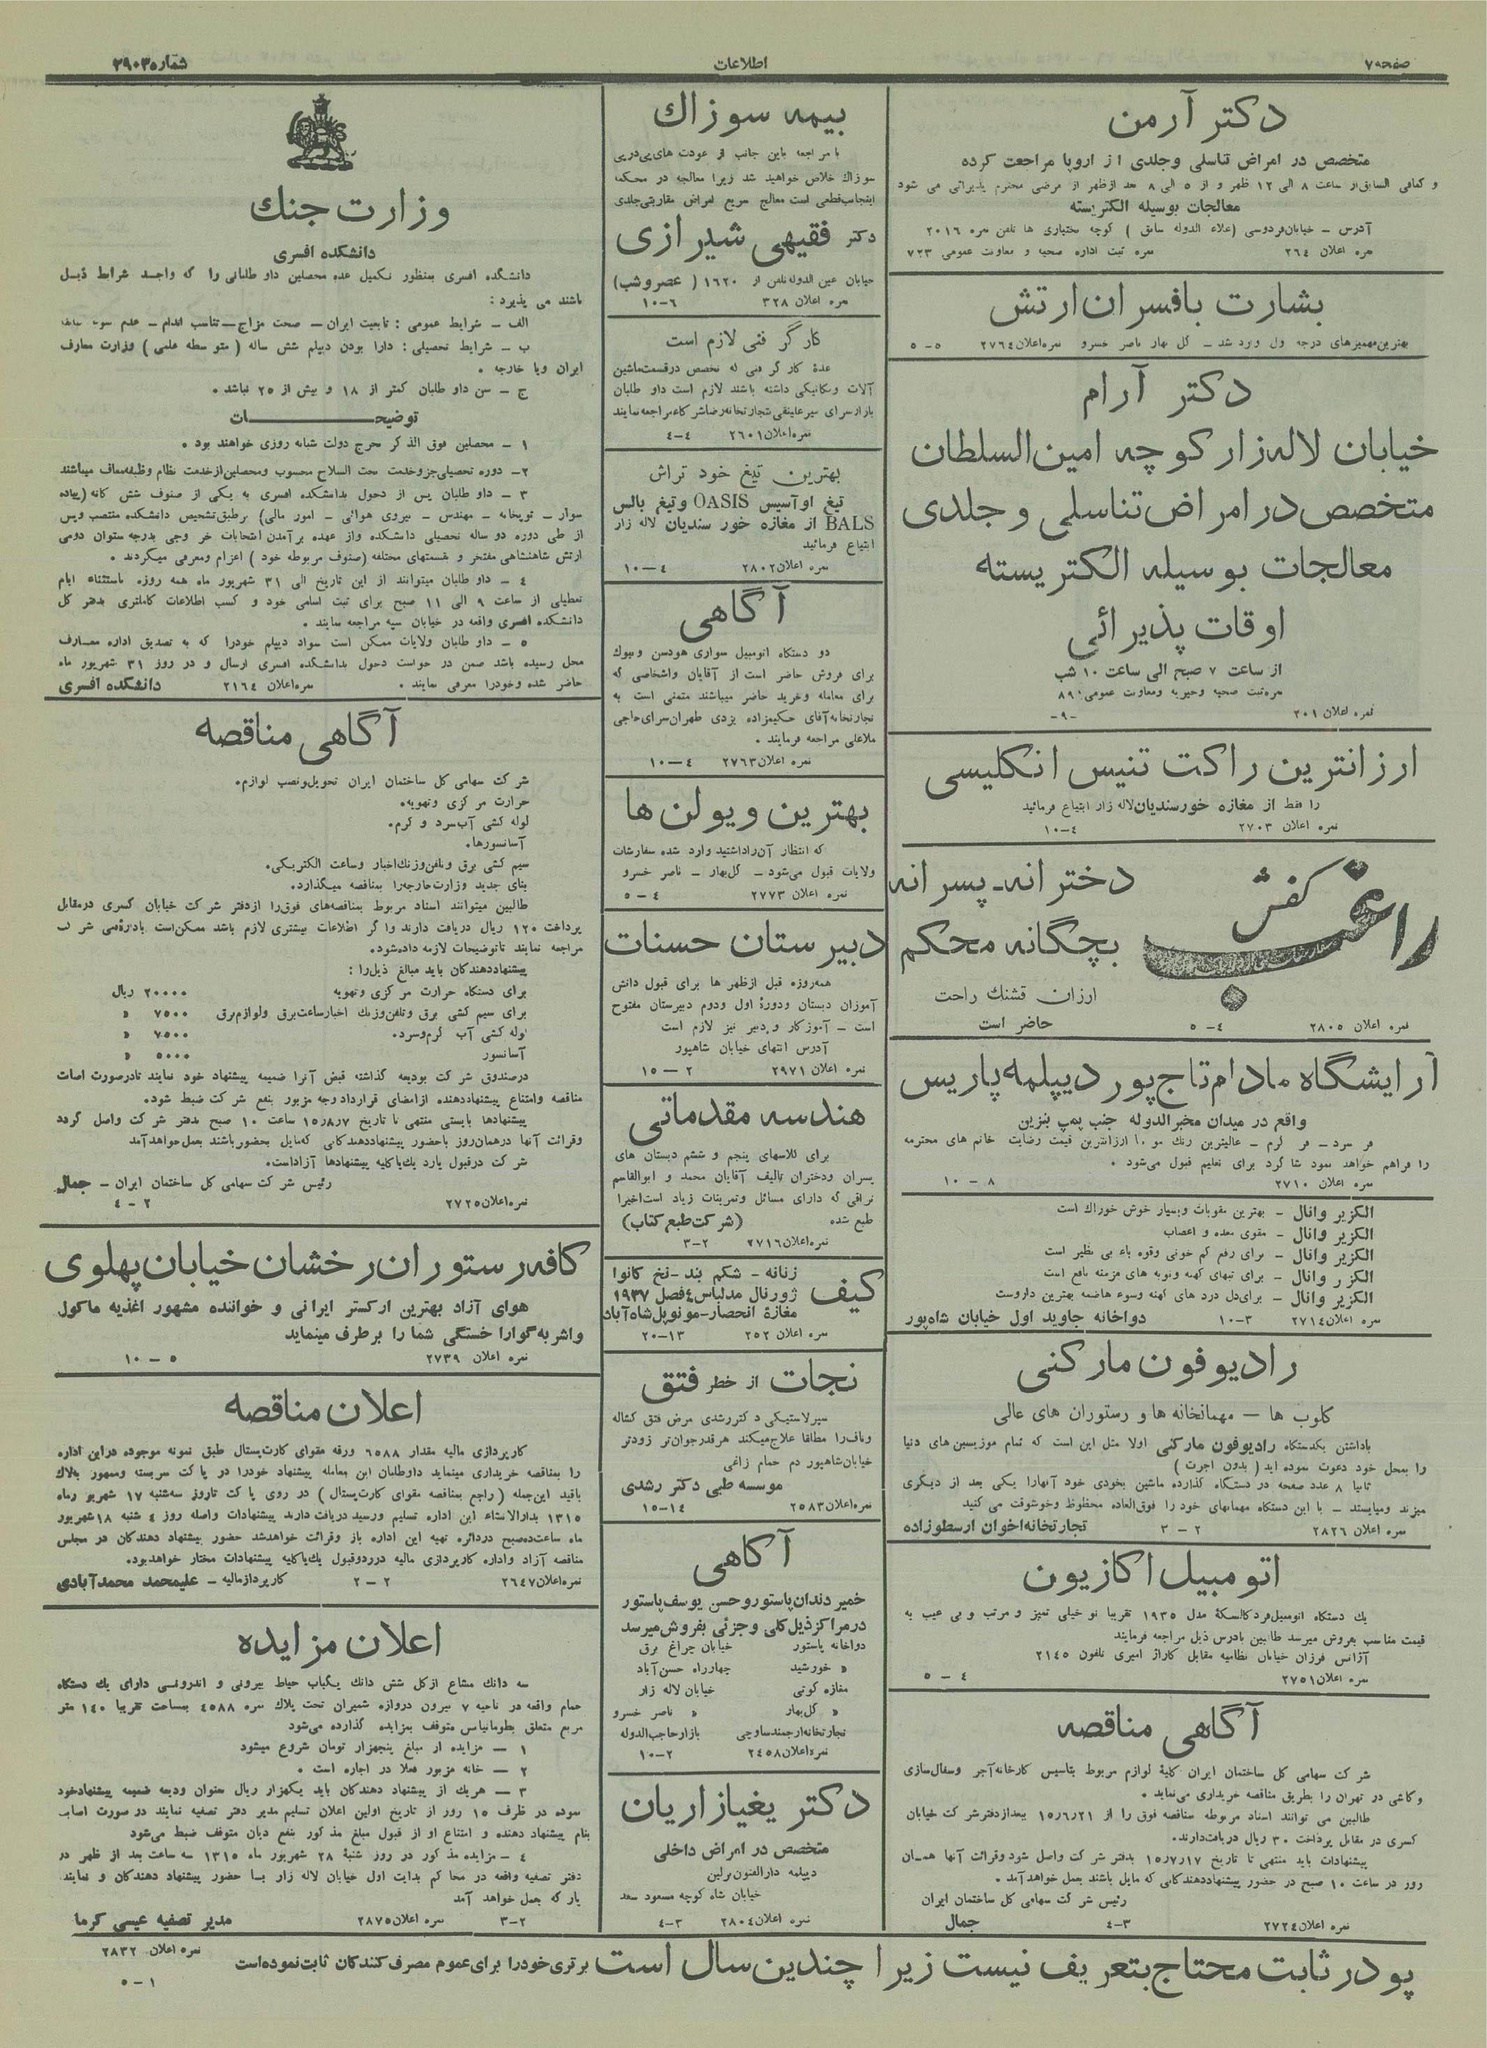 صفحه ۷
اطلاعات
شماره ۲۹۰۳
دکتر آرمن
متخصص در امراض تناسلی وجلدی از اروپا مراجعت کرده
و کمافی السابق از ساعت ۸ الی ۱۲ ظهر و از ۵ الی ۸ بعد ازظهر از مرضی محترم پذیرائی می شود
معالجات بوسیله الکتریسته
آدرس – خیابان فردوسی (علاء الدوله سابق ) کوچه بختیاری ها تلفن نمره ۲۰۱۶
نمره اعلان ۲۶۴ نمره ثبت اداره صحیه و معاونت عمومی ۷۲۳
بشارت بافسران ارتش
بهترین مهمیزهای درجه اول وارد شد – گل بهار ناصر خسرو نمره اعلان ۲۷۶۴ ۵–۵
دکتر آرام
خیابان لاله زار کوچه امین السلطان
متخصص در امراض تناسلی و جلدی
معالجات بوسیله الکتریسته
اوقات پذیرائی
از ساعت ۷ صبح الی ساعت ۱۰ شب
نمره ثبت صحیه وخیریه ومعاونت عمومی ۸۹۰
نمره اعلان ۲۰۱ –۹–
ارزانترین راکت تنیس انگلیسی
را فقط از مغازه خورسندیان لاله زار ابتیاع فرمائید
نمره اعلان ۲۷۰۳ ۴–۱۰
کفش
راغب
دخترانه – پسرانه
بچگانه محکم
ارزان قشنك راحت
حاضر است
نمره اعلان ۲۸۰۵ ۴–۵
آرایشگاه مادام تاج پور دیپلمه پاریس
واقع در میدان مخبرالدوله جنب پمپ بنزین
فر سرد – فر گرم – عالیترین رنك مو با ارزانترین قیمت رضایت خانم های محترمه
را فراهم خواهد نمود شاگرد برای تعلیم قبول می‌شود .
نمره اعلان ۲۷۱۰ ۸–۱۰
الکزیر وانال – بهترین مقویات وبسیار خوش خوراك است
الکزیر وانال – مقوی معده و اعصاب
الکزیر وانال – برای رفع کم خونی وقوه باء بی نظیر است
الکزیر وانال – برای تبهای کهنه ونوبه های مزمنه نافع است
الکزیر وانال – برای دل درد های کهنه وسوء هاضمه بهترین داروست
نمره اعلان ۲۷۱۴ ۳–۱۰ دواخانه جاوید اول خیابان شاه‌پور
رادیوفون مارکنی
کلوب ها – مهمانخانه ها و رستوران های عالی
باداشتن یکدستگاه رادیوفون مارکنی اولا مثل این است که تمام موزیسین های دنیا
را بمحل خود دعوت نموده اید ( بدون اجرت )
ثانیا ۸ عدد صفحه در دستگاه گذارده ماشین بخودی خود آنهارا یکی بعد از دیگری
میزند ومیایستد – با این دستگاه مهمانهای خود را فوق العاده محظوظ وخوشوقت می کنید
نمره اعلان ۲۸۲۶ ۲–۳ تجارتخانه اخوان ارسطوزاده
اتومبیل اکازیون
یك دستگاه اتومبیل فرد کالسکهٔ مدل ۱۹۳۵ تقریبا نو خیلی تمیز و مرتب و بی عیب به
قیمت مناسب بفروش میرسد طالبین بادرس ذیل مراجعه فرمایند
آژانس فرزان خیابان نظامیه مقابل گاراژ امیری تلفون ۲۱۴۵
نمره اعلان ۲۷۵۱ ۴–۵
آگاهی مناقصه
شرکت سهامی کل ساختمان ایران کلیهٔ لوازم مربوط بتاسیس کارخانه آجر وسفال سازی
وکاشی در تهران را بطریق مناقصه خریداری می‌نماید .
طالبین می توانند اسناد مربوطه مناقصه فوق را از ۱۵/۶/۲۱ ببعد از دفتر شرکت خیابان
کسری در مقابل پرداخت ۳۰ ریال دریافت دارند.
پیشنهادات باید منتهی تا تاریخ ۱۵/۷/۱۷ بدفتر شرکت واصل شود وقرائت آنها همان
روز در ساعت ۱۰ صبح در حضور پیشنهاددهندگانی که مایل باشند بعمل خواهد آمد .
رئیس شرکت سهامی کل ساختمان ایران
نمره اعلان ۲۷۲۴ ۳–۴ جمال
بیمه سوزاك
با مراجعه باین جانب از عودت های پی در پی
سوزاك خلاص خواهید شد زیرا معالجه در محکمه
اینجانب قطعی است معالج سریع امراض مقاربتی جلدی
دکتر فقیهی شیرازی
خیابان عین الدوله تلفن از ۱۶۲۰ ( عصر وشب)
نمره اعلان ۳۲۸ ۶–۱۰
کارگر فنی لازم است
عدهٔ کارگر فنی که تخصص در قسمت ماشین
آلات ومکانیکی داشته باشند لازم است داو طلبان
بازار سرای میرعلینقی تجارتخانه رضا شرکاء مراجعه نمایند
نمره اعلان ۲۶۰۱ ۴–۴
بهترین تیغ خود تراش
تیغ اوآسیس OASIS وتیغ بالس
BALS از مغازه خورسندیان لاله زار
ابتیاع فرمائید
نمره اعلان ۲۸۰۲ ۴–۱۰
آگاهی
دو دستگاه اتومبیل سواری هودسن وبیوك
برای فروش حاضر است از آقایان واشخاصی که
برای معامله وخرید حاضر میباشند متمنی است به
تجارتخانه آقای حکیم‌زاده یزدی طهران سرای حاجی
ملاعلی مراجعه فرمایند .
نمره اعلان ۲۷۶۳ ۴–۱۰
بهترین ویولن ها
که انتظار آن را داشتید وارد شده سفارشات
ولایات قبول می‌شود – گل‌بهار – ناصر خسرو
نمره اعلان ۲۷۷۳ ۴–۵
دبیرستان حسنات
همه‌روزه قبل ازظهر ها برای قبول دانش
آموزان دبستان ودورهٔ اول ودوم دبیرستان مفتوح
است – آموزگار و دبیر نیز لازم است
آدرس انتهای خیابان شاهپور
نمره اعلان ۲۹۷۱ ۲–۱۵
هندسه مقدماتی
برای کلاسهای پنجم و ششم دبستان های
پسران ودختران تالیف آقایان محمد و ابوالقاسم
نراقی که دارای مسائل وتمرینات زیاد است اخیرا
طبع شده (شرکت طبع کتاب)
نمره اعلان ۲۷۱۶ ۲–۳
کیف
زنانه – شکم بند – نخ کانوا
ژورنال مدلباس ۴ فصل ۱۹۳۷
مغازهٔ انحصار – مونوپل شاه‌آباد
نمره اعلان ۲۵۲ ۱۳–۲۰
نجات از خطر فتق
سپرلاستیکی دکتر رشدی مرض فتق کشاله
وناف را مطلقا علاج میکند هرقدر جوان‌تر زودتر
خیابان شاهپور دم حمام زاغی
موسسه طبی دکتر رشدی
نمره اعلان ۲۵۸۳ ۱۴–۱۵
آگاهی
خمیر دندان پاستور و حسن یوسف پاستور
در مراکز ذیل کلی و جزئی بفروش میرسد
دواخانه پاستور خیابان چراغ برق
« خورشید چهارراه حسن آباد
مغازه کوتی خیابان لاله زار
« گل‌بهار « ناصر خسرو
تجارتخانه ارجمند ساوجی بازار حاجب‌الدوله
نمره اعلان ۲۴۵۸ ۲–۱۰
دکتر یغیازاریان
متخصص در امراض داخلی
دیپلمه دارالفنون برلین
خیابان شاه کوچه مسعود سعد
نمره اعلان ۲۸۰۴ ۳–۴
وزارت جنك
دانشکده افسری
دانشگده افسری بمنظور تکمیل عده محصلین داو طلبانی را که واجد شرایط ذیل
باشند می پذیرد :
الف – شرایط عمومی : تابعیت ایران – صحت مزاج – تناسب اندام – عدم سوء سابقه
ب – شرایط تحصیلی : دارا بودن دیپلم شش ساله ( متوسطه علمی ) وزارت معارف
ایران ویا خارجه .
ج – سن داو طلبان کمتر از ۱۸ و بیش از ۲۵ نباشد .
توضیحات
۱ – محصلین فوق الذکر بخرج دولت شبانه روزی خواهند بود .
۲– دوره تحصیلی جزو خدمت تحت السلاح محسوب ومحصلین از خدمت نظام وظیفه معاف میباشند
۳ – داو طلبان پس از دخول بدانشکده افسری به یکی از صنوف شش گانه (پیاده
سوار – توپخانه – مهندس – نیروی هوائی – امور مالی) برطبق تشخیص دانشکده منتصب وپس
از طی دوره دو ساله تحصیلی دانشکده واز عهده برآمدن امتحانات خروجی بدرجه ستوان دومی
ارتش شاهنشاهی مفتخر و بقسمتهای مختلفه (صنوف مربوطه خود ) اعزام ومعرفی میگردند .
۴ – داو طلبان میتوانند از این تاریخ الی ۳۱ شهریور ماه همه روزه باستثناء ایام
تعطیلی از ساعت ۹ الی ۱۱ صبح برای ثبت اسامی خود و کسب اطلاعات کاملتری بدفتر کل
دانشکده افسری واقعه در خیابان سپه مراجعه نمایند .
۵ – داو طلبان ولایات ممکن است سواد دیپلم خودرا که به تصدیق اداره معارف
محل رسیده باشد ضمن در خواست دخول بدانشکده افسری ارسال و در روز ۳۱ شهریور ماه
حاضر شده وخودرا معرفی نمایند . نمره اعلان ۲۱۶۴ دانشکده افسری
آگاهی مناقصه
شرکت سهامی کل ساختمان ایران تحویل ونصب لوازم.
حرارت مرکزی وتهویه.
لوله کشی آب سرد و گرم.
آسانسورها.
سیم کشی برق وتلفن وزنك اخبار وساعت الکتریکی.
بنای جدید وزارت خارجه را بمناقصه میگذارد.
طالبین میتوانند اسناد مربوط بمناقصه‌های فوق را ازدفتر شرکت خیابان کسری درمقابل
پرداخت ۱۲۰ ریال دریافت دارند واگر اطلاعات بیشتری لازم باشد ممکن است باداره فنی شرکت
مراجعه نمایند تا توضیحات لازمه داده شود.
پیشنهاد دهندگان باید مبالغ ذیل را :
برای دستگاه حرارت مرکزی وتهویه ۲۰۰۰۰ ریال
برای سیم کشی برق وتلفن وزنك اخبار ساعت برق ولوازم برق ۷۵۰۰ «
لوله کشی آب گرم وسرد. ۷۵۰۰ «
آسانسور ۵۰۰۰ «
درصندوق شرکت بودیعه گذاشته قبض آنرا ضمیمه پیشنهاد خود نمایند تا درصورت اصابت
مناقصه وامتناع پیشنهاد دهنده از امضای قرارداد وجه مزبور بنفع شرکت ضبط شود.
پیشنهادها بایستی منتهی تا تاریخ ۱۵/۸/۷ ساعت ۱۰ صبح بدفتر شرکت واصل گردد
وقرائت آنها درهمان روز باحضور پیشنهاددهندگانی که مایل بحضور باشند بعمل خواهد آمد
شرکت درقبول یارد یك یا کلیه پیشنهادها آزاد است.
رئیس شرکت سهامی کل ساختمان ایران – جمال
نمره اعلان ۲۷۲۵ ۲–۴
کافه رستوران رخشان خیابان پهلوی
هوای آزاد بهترین ارکستر ایرانی و خواننده مشهور اغذیه ماکول
واشربه گوارا خستگی شما را برطرف مینماید
نمره اعلان ۲۷۳۹ ۵–۱۰
اعلان مناقصه
کارپردازی مالیه مقدار ۶۵۸۸ ورقه مقوای کارت پستال طبق نمونه موجوده در این اداره
را بمناقصه خریداری مینماید داوطلبان این معامله پیشنهاد خودرا در پاکت سربسته وممهور بلاك
باقید این جمله ( راجع بمناقصه مقوای کارت پستال ) در روی پاکت تا روز سه شنبه ۱۷ شهریورماه
۱۳۱۵ بدارالانشاء این اداره تسلیم ورسید دریافت دارند پیشنهادات واصله روز ۴ شنبه ۱۸ شهریور
ماه ساعت ده صبح دردائره تهیه این اداره باز وقرائت خواهد شد حضور پیشنهاد دهندگان در مجلس
مناقصه آزاد واداره کارپردازی مالیه دررد وقبول یك یا کلیه پیشنهادات مختار خواهد بود.
نمره اعلان ۲۶۴۷ ۲–۲ کارپرداز مالیه – علیمحمد محمدآبادی
اعلان مزایده
سه دانك مشاع ازکل شش دانك یکباب حیاط بیرونی و اندرونی دارای یك دستگاه
حمام واقعه در ناحیه ۷ بیرون دروازه شمیران تحت پلاك نمره ۴۵۸۸ بمساحت تقریبا ۱۴۰ متر
مربع متعلق بطومانیاس متوقف بمزایده گذارده می‌شود
۱ – مزایده از مبلغ پنجهزار تومان شروع میشود
۲ – خانه مزبور فعلا در اجاره است .
۳ – هریك از پیشنهاد دهندگان باید یکهزار ریال بعنوان ودیعه ضمیمه پیشنهاد خود
نموده در ظرف ۱۵ روز از تاریخ اولین اعلان تسلیم مدیر دفتر تصفیه نمایند در صورت اصابت
بنام پیشنهاد دهنده و امتناع او از قبول مبلغ مذکور بنفع دیان متوقف ضبط می‌شود
۴ – مزایده مذکور در روز شنبهٔ ۲۸ شهریور ماه ۱۳۱۵ سه ساعت بعد از ظهر در
دفتر تصفیه واقعه در محاکم بدایت اول خیابان لاله زار بــا حضور پیشنهاد دهندگان و نماینده
پارکه بعمل خواهد آمد
۲–۳ نمره اعلان ۲۸۷۵ مدیر تصفیه عیسی کرما
پودر ثابت محتاج بتعریف نیست زیرا چندین سال است برتری خودرا برای عموم مصرف کنندگان ثابت نموده است
نمره اعلان ۲۸۳۲
۱–۵